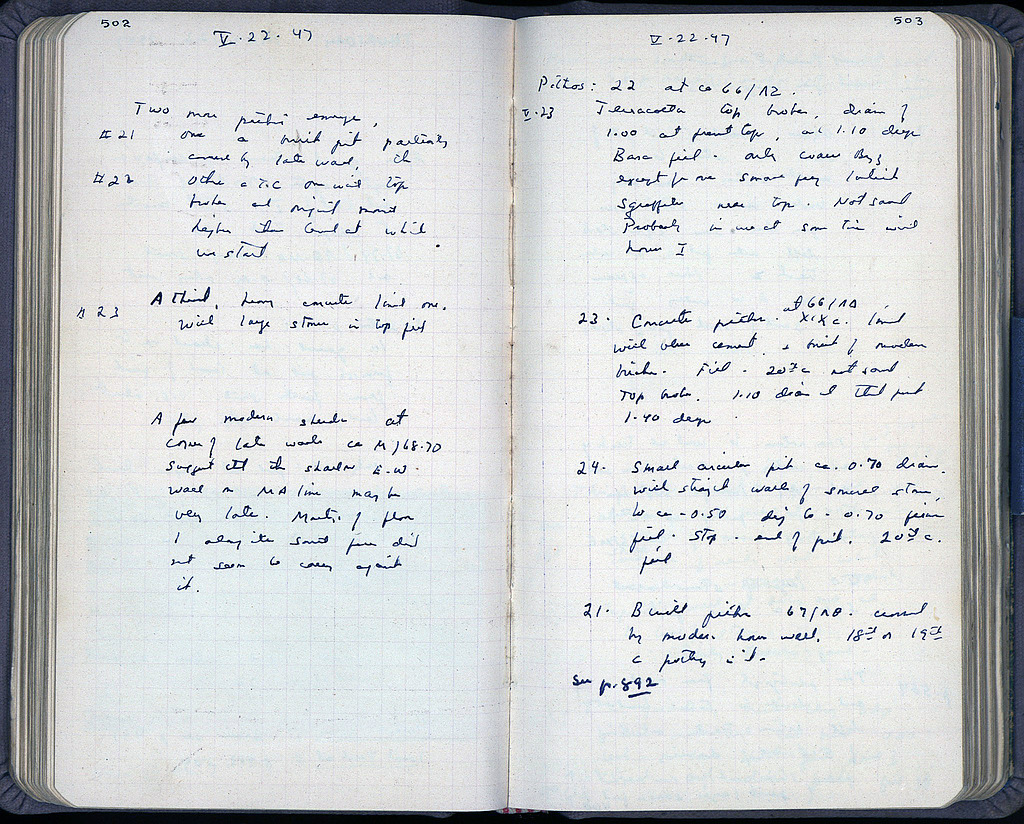 502
V. 22. 47
Two more pithoi emerge,
#21 one a built pit partially
covered by late wall, the
#22 other a T.C. one with top
broken at original
higher than level at which
we start
#23 A third, heavy concrete lined one.
with large stones in top fill
A few modern sherds at
corner of late walls ca 68-70
suggest that the E.W.
wall on MA line may be
very late. of floor
1 along its south face did
not seem to carry against
it.
503
V. 22. 47
Pithos: 22 at ca 66/ΛΖ.
V.23 Terracotta top broken, diam of
1.00 at present top, and 1.10 deep
Basic fill. only
except for one small
Sgraffito near top. Not saved
Probably in use at same time with
house I
23. Concrete pithos. at 66/ XIX c. lined
with cement, & built of modern
bricks. Fill. 20th c. not saved
Top broken. 1.10 diam at
1.40 deep
24. Small circular pit ca. 0.70 diam.
with straight wall of small stones,
to ca -0.50 dig to -0.70
fill. Stop. end of pit. 20th c.
fill
21. Built pithos 67/ . covered
by modern house wall. 18th or 19th
c pottery in it.
See p. 892